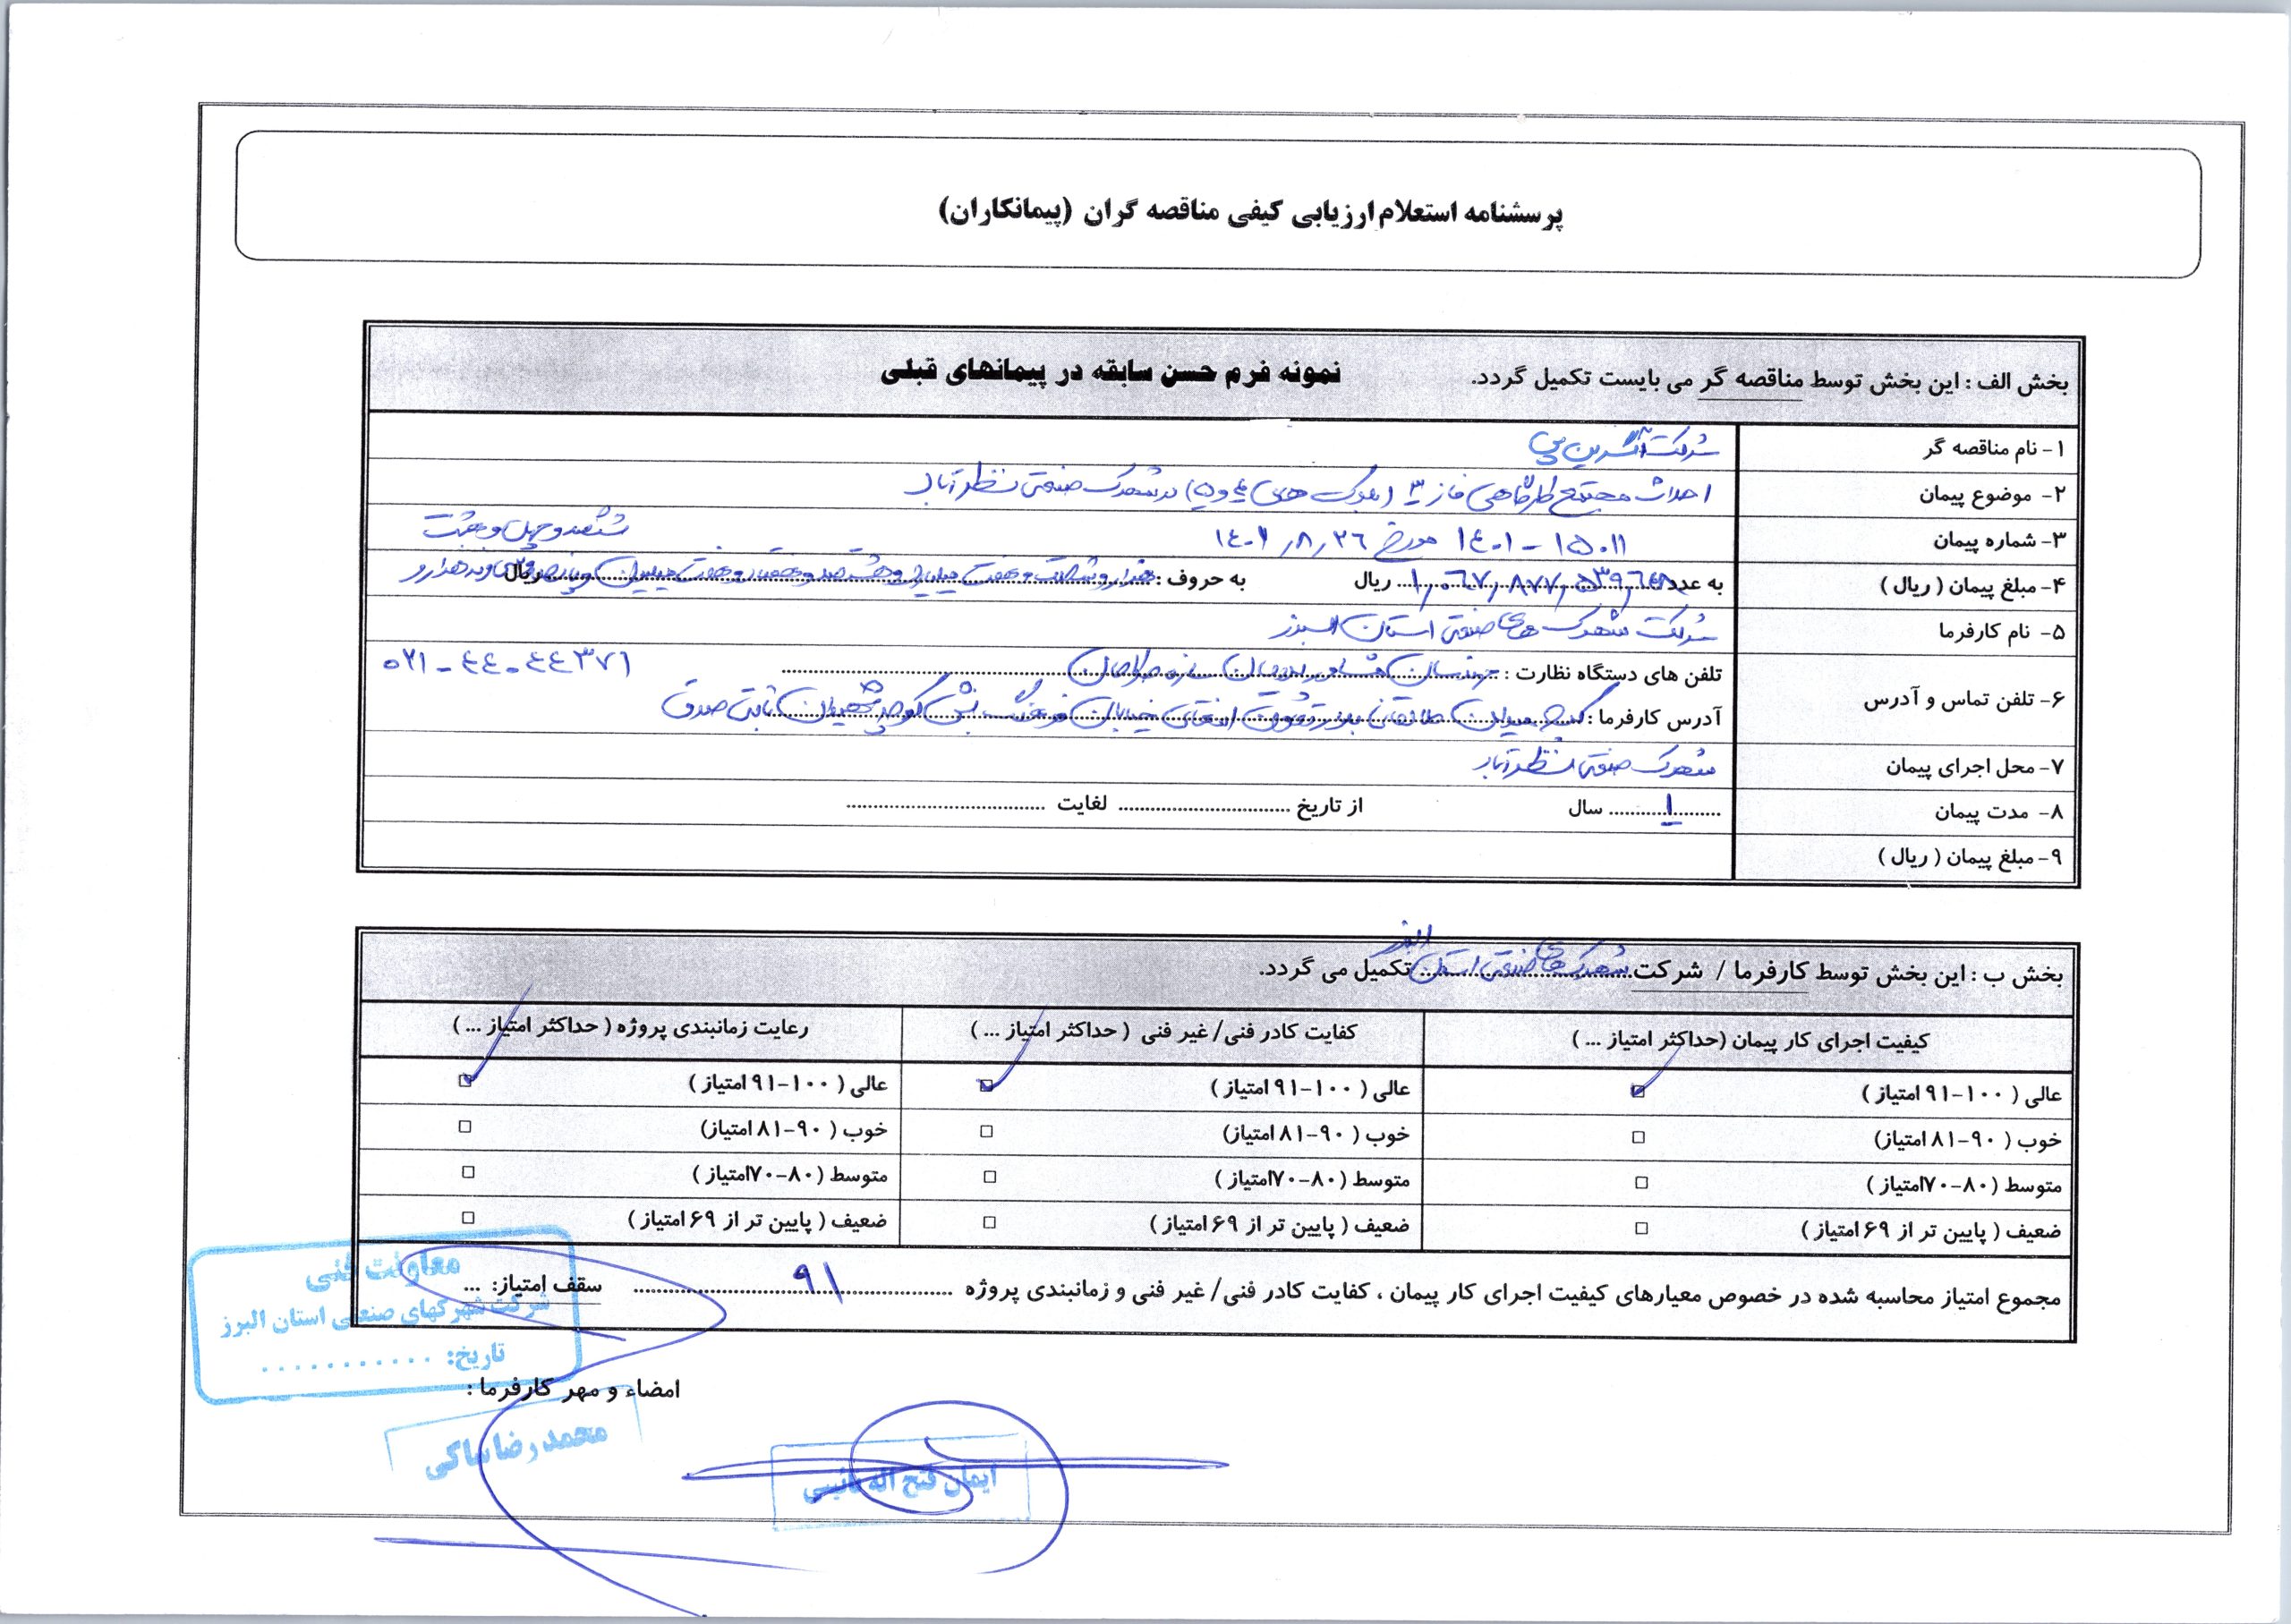 پرسشنامه استعلام ارزیابی کیفی مناقصه گران (پیمانکاران)
بخش الف : این بخش توسط مناقصه گر می بایست تکمیل گردد. نمونه فرم حسن سابقه در پیمانهای قبلی
۱- نام مناقصه گر شرکت
۲- موضوع پیمان احداث مجتمع کارگاهی فاز ۳ (بلوک های ۴ و ۵) در شهرک صنعتی نظرآباد
۳- شماره پیمان ۱۵۰۱۱ - ۱۴۰۱ مورخ ۱۴۰۱/۸/۲۶
ششصد و چهل و هشت
۴- مبلغ پیمان ( ریال ) به عدد ۱,۰۶۷,۸۷۷,۵۳۹,۶۴۸ ریال به حروف : هزار و شصت و هفت میلیارد و هشتصد و هفتاد و هفت میلیون و پانصد و سی و نه هزار و ریال
۵- نام کارفرما شرکت شهرک های صنعتی استان البرز
۶- تلفن تماس و آدرس تلفن های دستگاه نظارت : مهندسان مشاور سازه ۰۲۱ - ۴۴۰۴۴۳۷۱
آدرس کارفرما : کرج میدان طالقانی بلوار خیابان فرهنگ نبش کوچه شهیدان ثابتی صدق
۷- محل اجرای پیمان شهرک صنعتی نظرآباد
۸- مدت پیمان ۱ سال از تاریخ .................... لغایت ....................
۹- مبلغ پیمان ( ریال )
بخش ب : این بخش توسط کارفرما / شرکت شهرک های صنعتی استان البرز تکمیل می گردد.
کیفیت اجرای کار پیمان (حداکثر امتیاز ... ) کفایت کادر فنی/ غیر فنی ( حداکثر امتیاز ... ) رعایت زمانبندی پروژه ( حداکثر امتیاز ... )
عالی ( ۱۰۰-۹۱ امتیاز ) عالی ( ۱۰۰-۹۱ امتیاز ) عالی ( ۱۰۰-۹۱ امتیاز )
خوب ( ۹۰-۸۱ امتیاز) خوب ( ۹۰-۸۱ امتیاز) خوب ( ۹۰-۸۱ امتیاز)
متوسط (۸۰-۷۰امتیاز ) متوسط (۸۰-۷۰امتیاز ) متوسط (۸۰-۷۰امتیاز )
ضعیف ( پایین تر از ۶۹ امتیاز ) ضعیف ( پایین تر از ۶۹ امتیاز ) ضعیف ( پایین تر از ۶۹ امتیاز )
مجموع امتیاز محاسبه شده در خصوص معیارهای کیفیت اجرای کار پیمان ، کفایت کادر فنی/ غیر فنی و زمانبندی پروژه ۹۱ سقف امتیاز: ...
معاونت فنی
شرکت شهرکهای صنعتی استان البرز
تاریخ: ...........
امضاء و مهر کارفرما :
محمدرضا ساکی
ایمان فتح اله نائینی